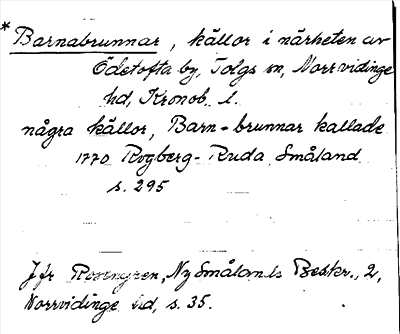 * Barnabrunnar, källor i närheten av
Ödetofta by, Tolgs sn, Norrvidinge
hd, Kronob. l.
några källor, Barn-brunnar kallade
1770 Rogberg-Ruda Småland
s. 295
Jfr Rosengren, Ny Smålands Beskr., 2,
Norrvidinge hd, s. 35.